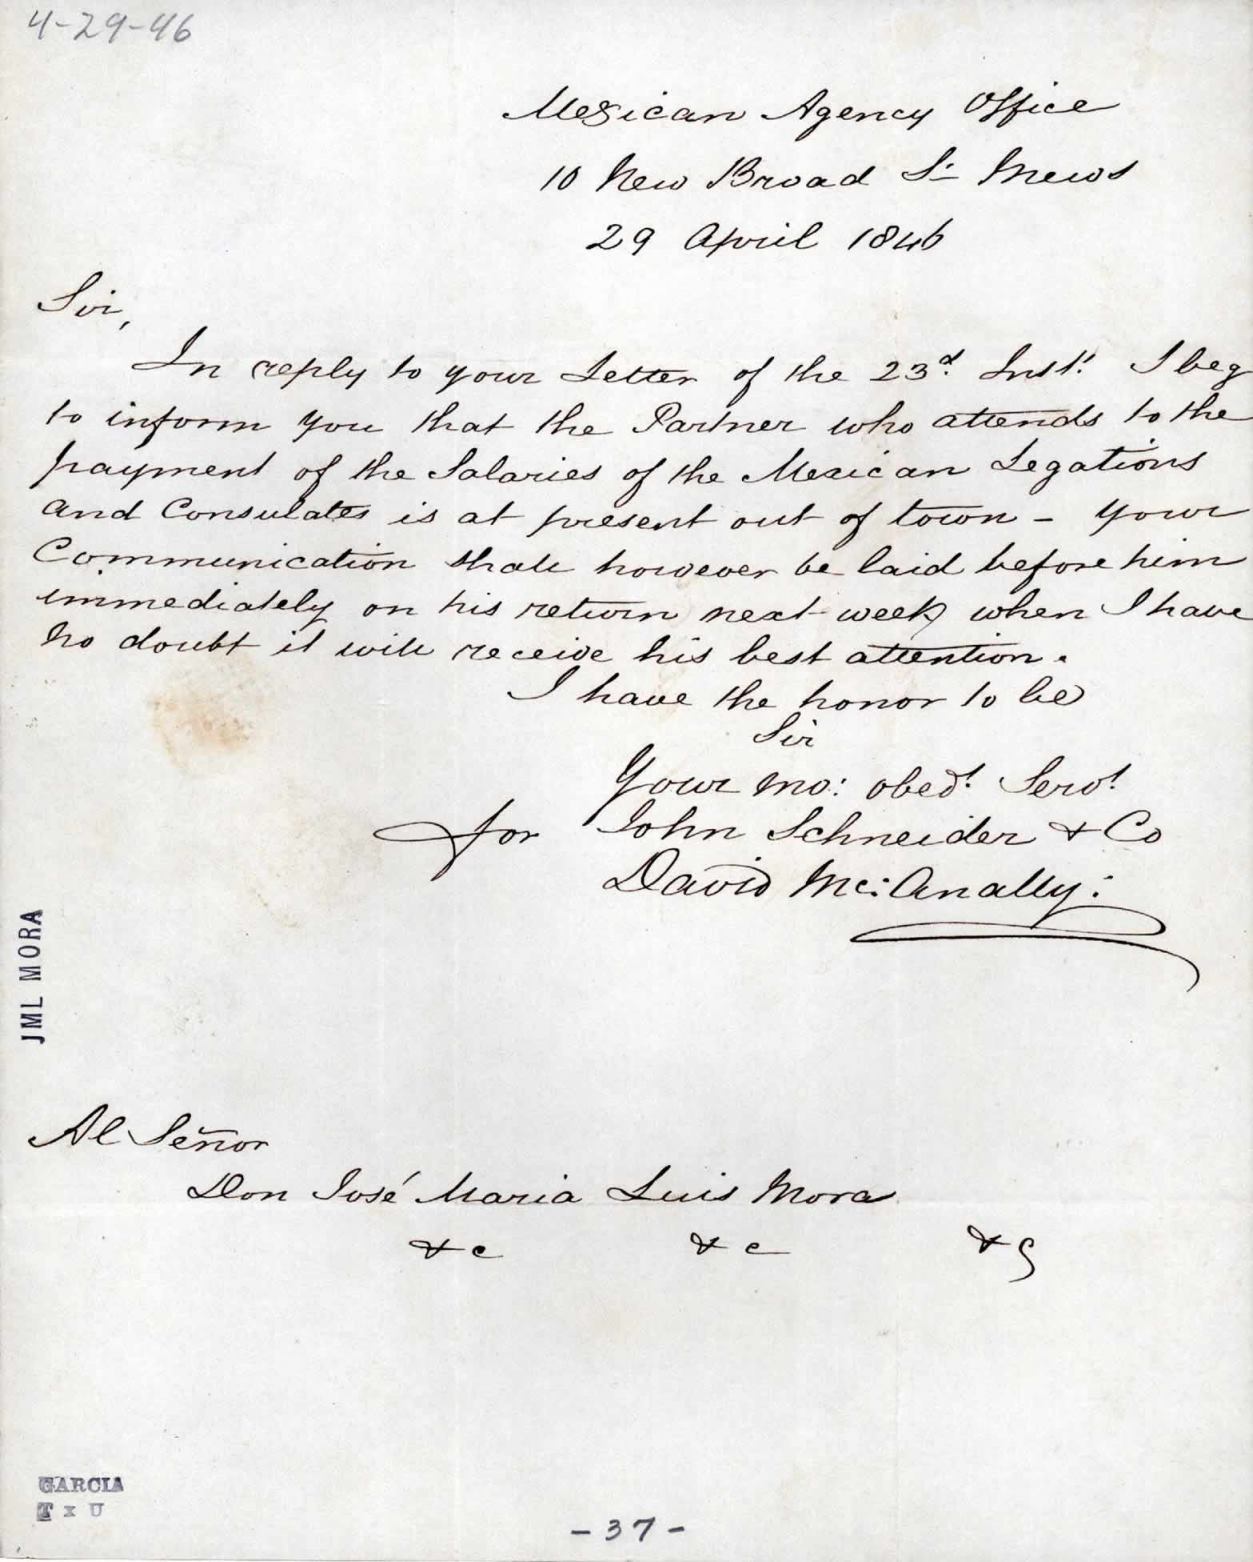 4-29-46
Mexican Agency Office
10 New Broad St Mews
29 April 1846
Sir,
In reply to your Letter of the 23d. Inst. I beg
to inform you that the Partner who attends to the
payment of the Salaries of the Mexican Legations
and Consulates is at present out of town - your
Communication shall however be laid before him
immediately on his return next week when I have
no doubt it will receive his best attention.
I have the honor to be
Sir
Your mo: obedt. Servt.
for John Schneider & Co
David Mc:Anally:
JML MORA
Al Señor
Don José Maria Luis Mora
&c &c &c
GARCIA
TxU
-37-